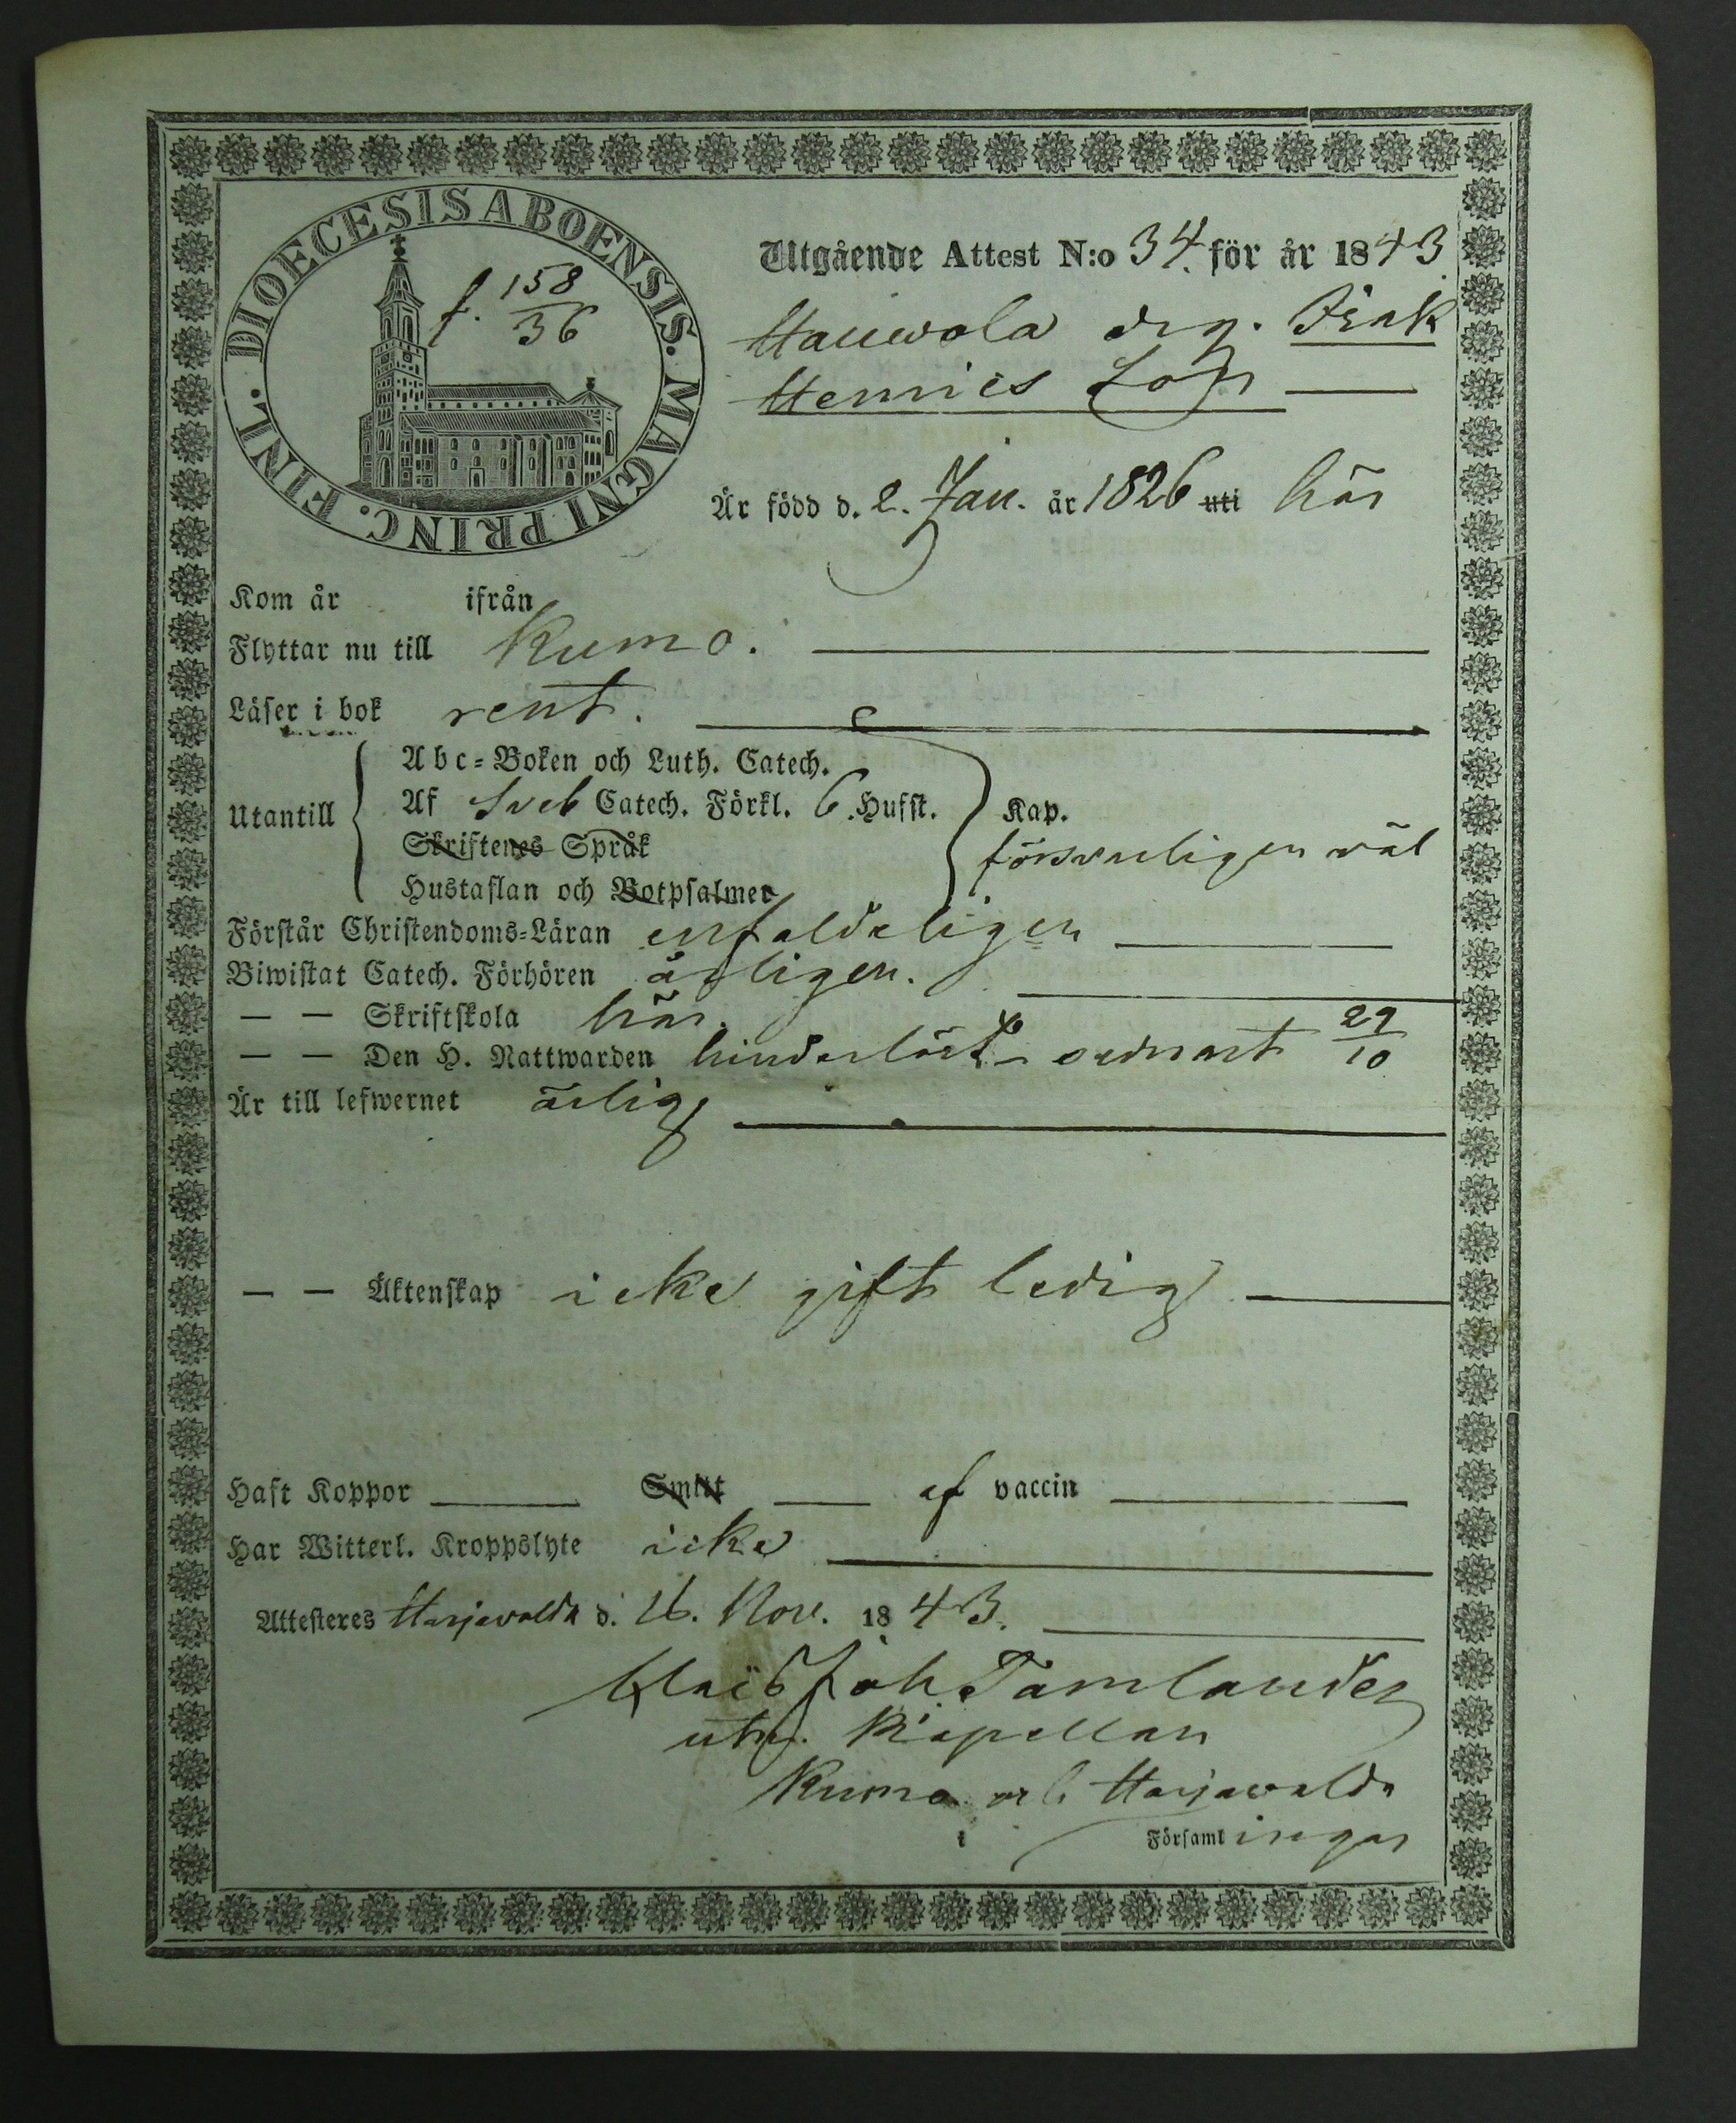 DIOECESIS ABOENSIS. MAGNI PRINC. FINL.
f. 158/36
Utgående Attest N:o 34. för år 1843.
drg.
Henrics Son
Är född d. 2. Jan. år 1826 uti här
Kom år ifrån
Flyttar nu till Kumo.
Läser i bok rent.
Utantill
Abc-Boken och Luth. Catech.
Af Sveb Catech. Förkl. 6 Hufst.
Skriftenes Språk
Hustaflan och Botpsalmer
Kap.
försvarligen väl
Förstår Christendoms-Läran enfaldeligen
Biwistat Catech. Förhören årligen.
— — Skriftskola här.
— — Den H. Nattwarden sednast 29/10
Är till lefwernet ärlig
— — Äktenskap icke gift ledig
Haft Koppor Smitt af vaccin
Har Witterl. Kroppslyte icke
Attesteres Harjavalda d. 16. Nov. 1843.
Joh. Tamlander
Kapellan
Kumo och Harjavalda
i Församlingar